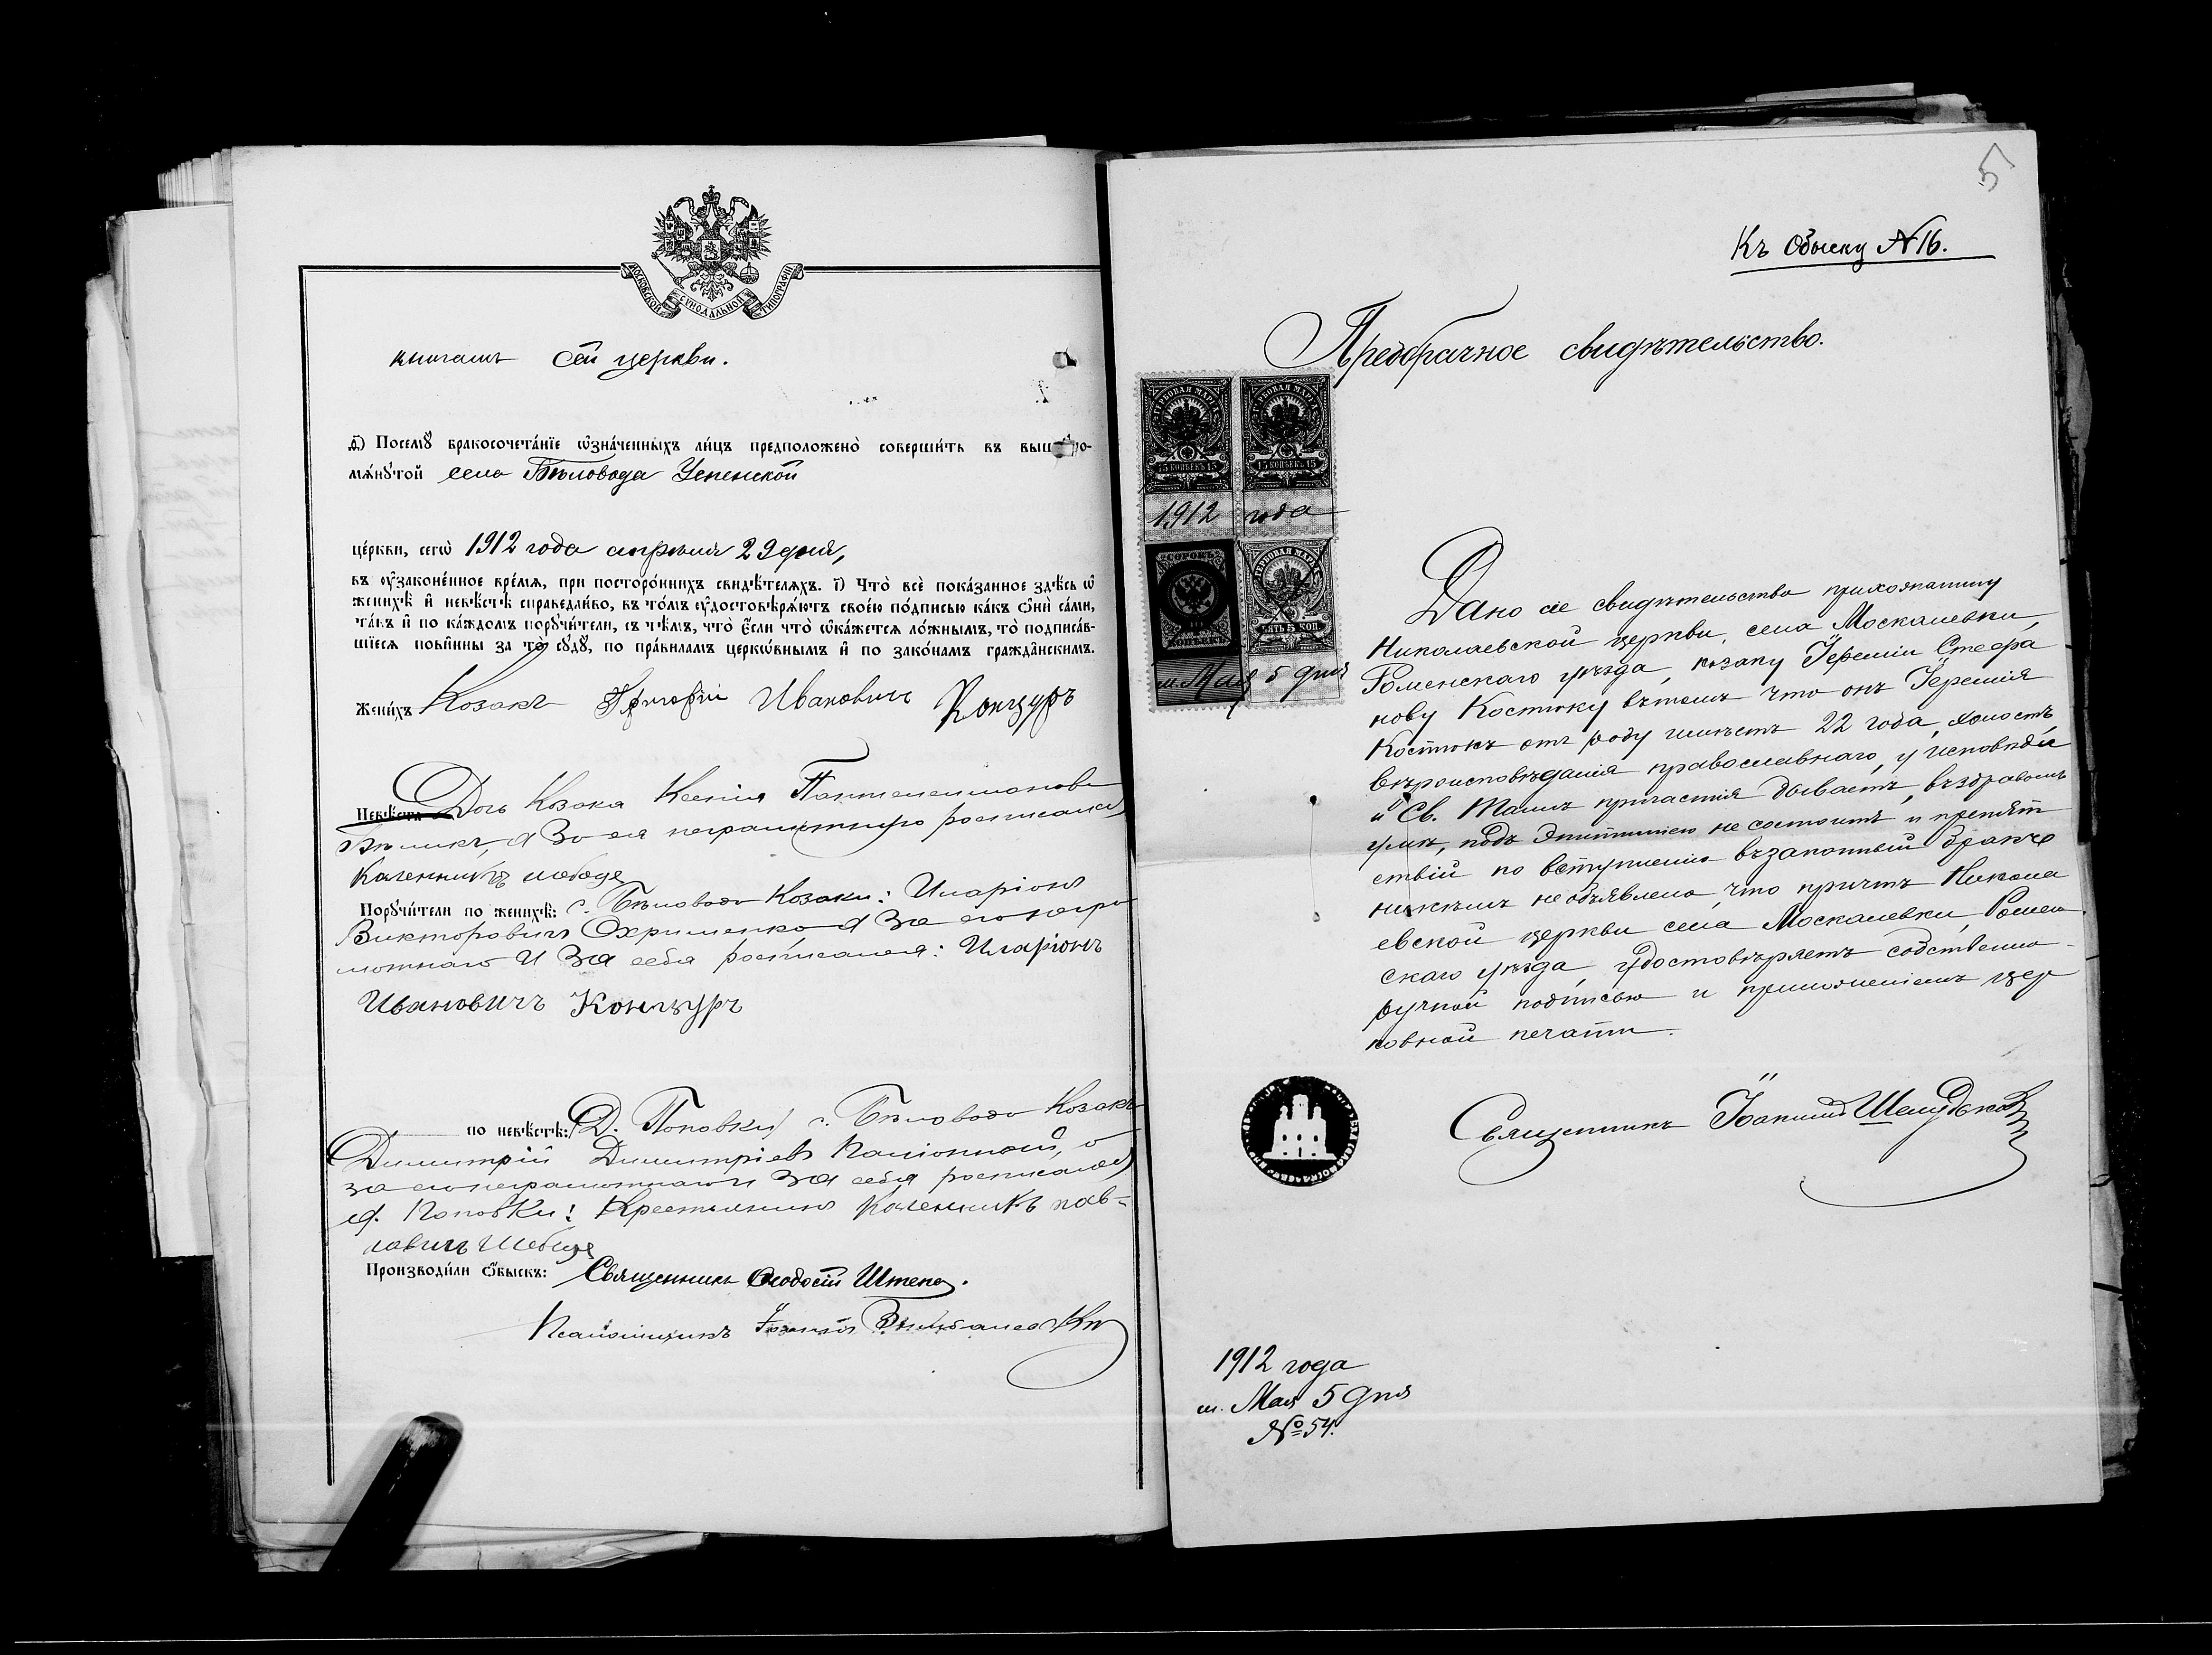 МОСКОВСКОЙ СѴНОДАЛЬНОЙ ТИПОГРАФІИ
книгамъ сей церкви.
д҃) Посемꙋ̀ бракосочета́нїе ѡ҆зна́ченныхъ ли́цъ предположено̀ соверши́ть въ вышепо-
мѧ́нꙋтой села Бѣловода Успенской
це́ркви, сегѡ̀ 1912 года апрѣля 29 дня,
въ ᲂу҆зако́ненное вре́мѧ, при посторо́ннихъ свидѣ́телѧхъ. і҃) Что̀ всѐ пока́занное здѣ́сь ѡ҆
женихѣ̀ и҆ невѣ́стѣ справедли́во, въ то́мъ ᲂу҆достовѣрѧ́ютъ свое́ю по́дписью ка́къ ѻ҆нѝ са́ми,
та́къ и҆ по ка́ждомъ порꙋчи́тели, съ тѣ́мъ, что̀ є҆́сли что̀ ѡ҆ка́жется ло́жнымъ, то̀ подписа́в-
шїесѧ пови́нны за то̀ сꙋдꙋ̀, по пра́виламъ церкѡ́внымъ и҆ по зако́намъ гражда̑нскимъ.
Жени́хъ Козакъ Григорій Ивановичъ Конгуръ
Невѣ́ста Дочь Козака Ксенія Пантелеимонова
Бѣликъ, а За ея неграмотную росписался
Каленникъ шебеде
Порꙋчи́тели по женихѣ̀: с. Бѣловода Козаки: Иларіонъ
Викторовичъ Охрименко, а За его негра
мотнаго И За себя росписался: Иларіонъ
Ивановичъ Конгуръ
по невѣ́стѣ: Д. Поповки, с. Бѣловода Козакъ
Димитрій Димитріевъ а
за его неграмотнаго и За себя росписался
д. Поповки: Крестьянинъ Каленникъ пав-
ловичъ Шебеде
Производи́ли ѻ҆́быскъ: Священникъ Ѳеодосій Штепа.
Псаломщикъ
5
Къ Обыску № 16.
Предбрачное свидѣтельство.
ГЕРБОВАЯ МАРКА ГЕРБОВАЯ МАРКА
15 КОПѢЕКЪ 15 15 КОПѢЕКЪ 15
1912 года
СОРОКЪ ГЕРБОВАЯ МАРКА
КОПѢЕКЪ ПЯТЬ 5 КОП.
м. Мая 5 дня
Дано сіе свидѣтельство прихожанину
Николаевской церкви, села Москалевки,
Роменскаго уѣзда, козаку Іереміи Стефа
нову Костюку вътомъ что онъ Іеремія
Костюкъ отъ роду имѣетъ 22 года, холостъ
вѣроисповѣданія православнаго, у исповѣди
и Св. Таинъ причастія бываетъ, въздравомъ
умѣ, подъ эпитиміею не состоитъ и препят
ствій по вступленію възаконный бракъ
никѣмъ необъявлено, что причтъ Никола
евской церкви села Москалевки, Ромен
скаго уѣзда, удостовѣряетъ собственно-
ручной подписью и приложеніемъ цер
ковной печати.
Священникъ Іоаннъ
1912 года
м. Мая 5 дня
№ 54.